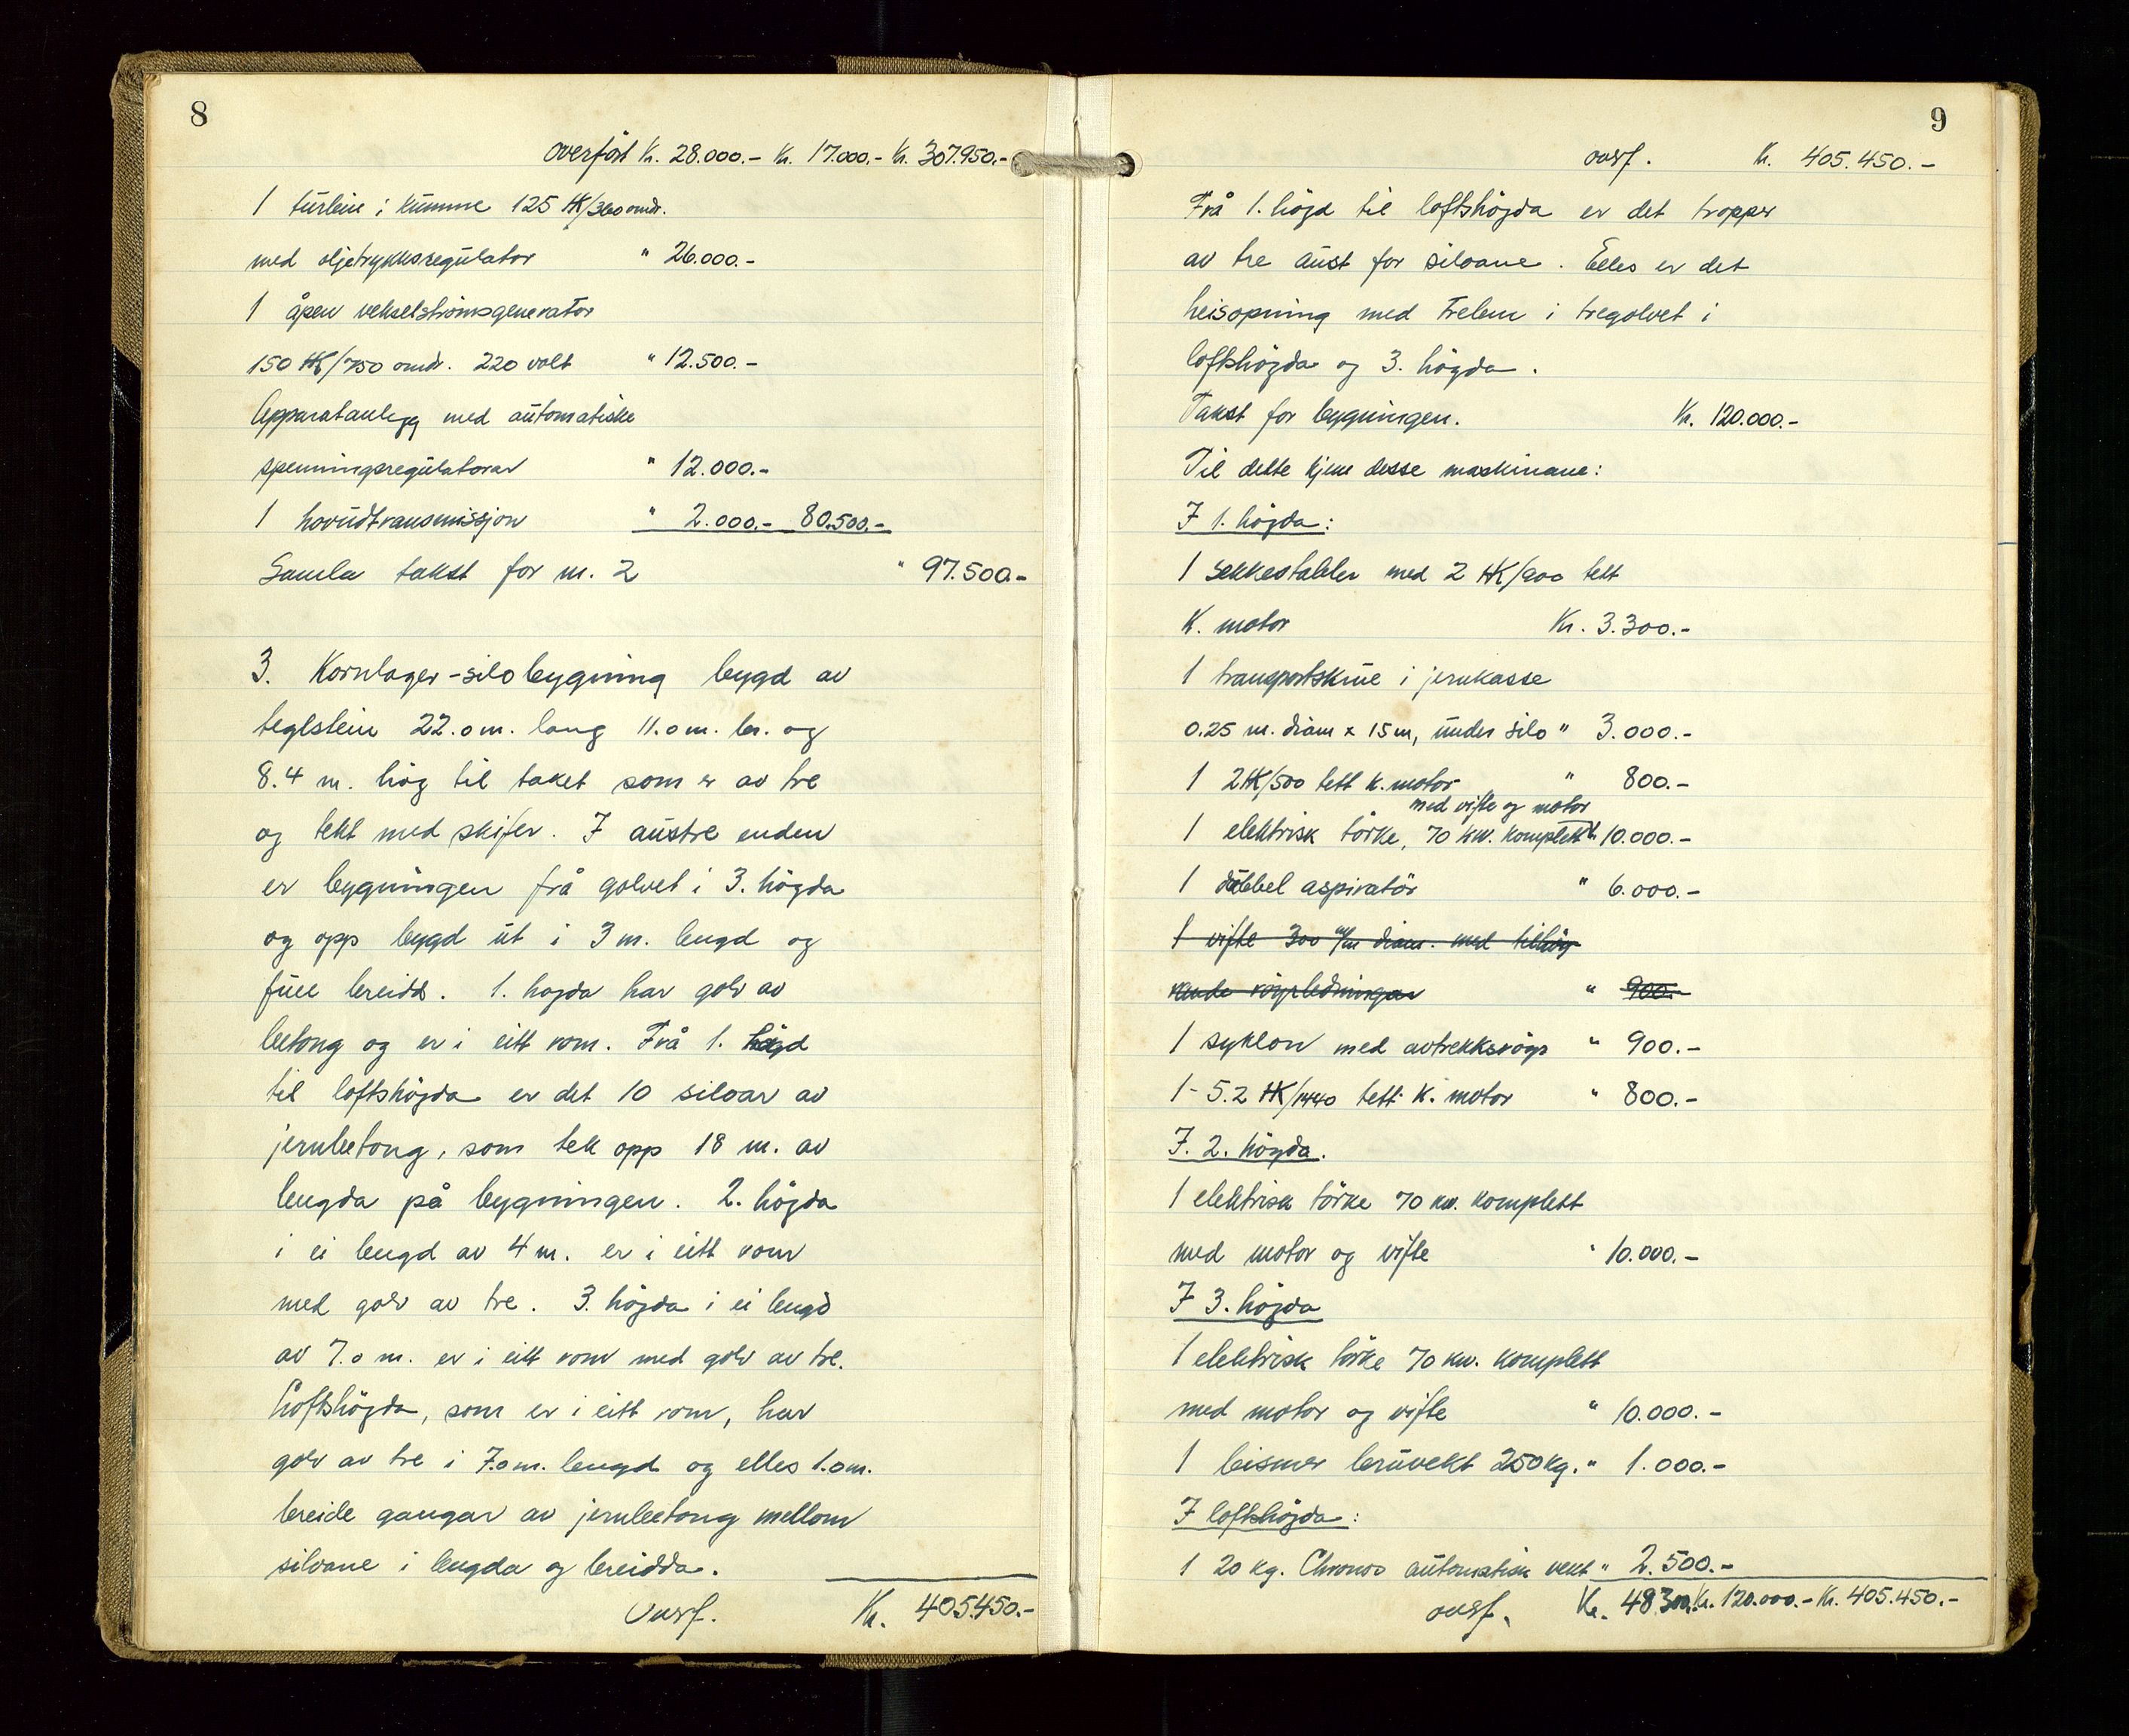 8
overfört Kr. 28.000.- Kr. 17.000.- Kr. 307.950.-
1 turbin i kumme 125 HK/360 omdr.
med oljetrykksregulator " 26.000.-
1 åpen vekselströmsgenerator
150 HK/750 omdr. 220 volt " 12.500.-
Apparatanlegg med automatiske
spenningsregulatorar " 12.000.-
1 hovudtransmissjon " 2.000.- 80.500.-
Samla takst for m. 2 " 97.500.-
3. Kornlager-silobygning bygd av
teglstein 22.0 m. lang 11.0 m. br. og
8.4 m. høg til taket som er av tre
og tekt med skifer. I austre enden
er bygningen frå golvet i 3. högda
og opp bygd ut i 3 m. lengd og
full breidd. 1. hogda har golv av
betong og er i eitt rom. Frå 1. högd
til loftshögda er det 10 siloar av
jernbetong, som tek opp 18 m. av
lengda på bygningen. 2. högda
i ei lengd av 4 m. er i eitt rom
med golv av tre. 3. högda i ei lengd
av 7.0 m. er i eitt rom med golv av tre.
Loftshögda, som er i eitt rom, har
golv av tre i 7.0 m. lengd og elles 1.0 m.
breide gangar av jernbetong mellom
siloane i lengda og breidda.
Overf. Kr. 405.450.-
9
overf. Kr. 405.450.-
Frå 1. högd til loftshögda er det tropper
av tre aust for siloane. Elles er det
heisopning med trelem i tregolvet i
loftshögda og 3. högda.
Takst for bygningen. Kr. 120.000.-
Til dette kjem desse maskinane:
I 1. högda:
1 sekkestabler med 2 HK/900 tett
K. motor Kr. 3.300.-
1 transportskrue i jernkasse
0.25 m. diam x 15 m, under silo " 3.000.-
1 2 HK/500 tett k. motor " 800.-
med vifte og motor
1 elektrisk törke, 70 kw. komplett " 10.000.-
1 dubbel aspiratör " 6.000.-
1 vifte 300 m/m diam. med tilhöy-
rande röyrledningar " 900.-
1 syklon med avtrekksröyr " 900.-
1 - 5.2 HK/1440 tett k. motor " 800.-
I. 2. högda.
1 elektrisk törke 70 kw. komplett
med motor og vifte " 10.000.-
I 3. högda
1 elektrisk törke 70 kw. komplett
med motor og vifte " 10.000.-
1 bismer bruvekt 250 kg. " 1.000.-
I loftshögda:
1 20 kg. Chronos automatisk vekt " 2.500.-
overf. Kr. 48300.- Kr. 120.000.- Kr. 405.450.-